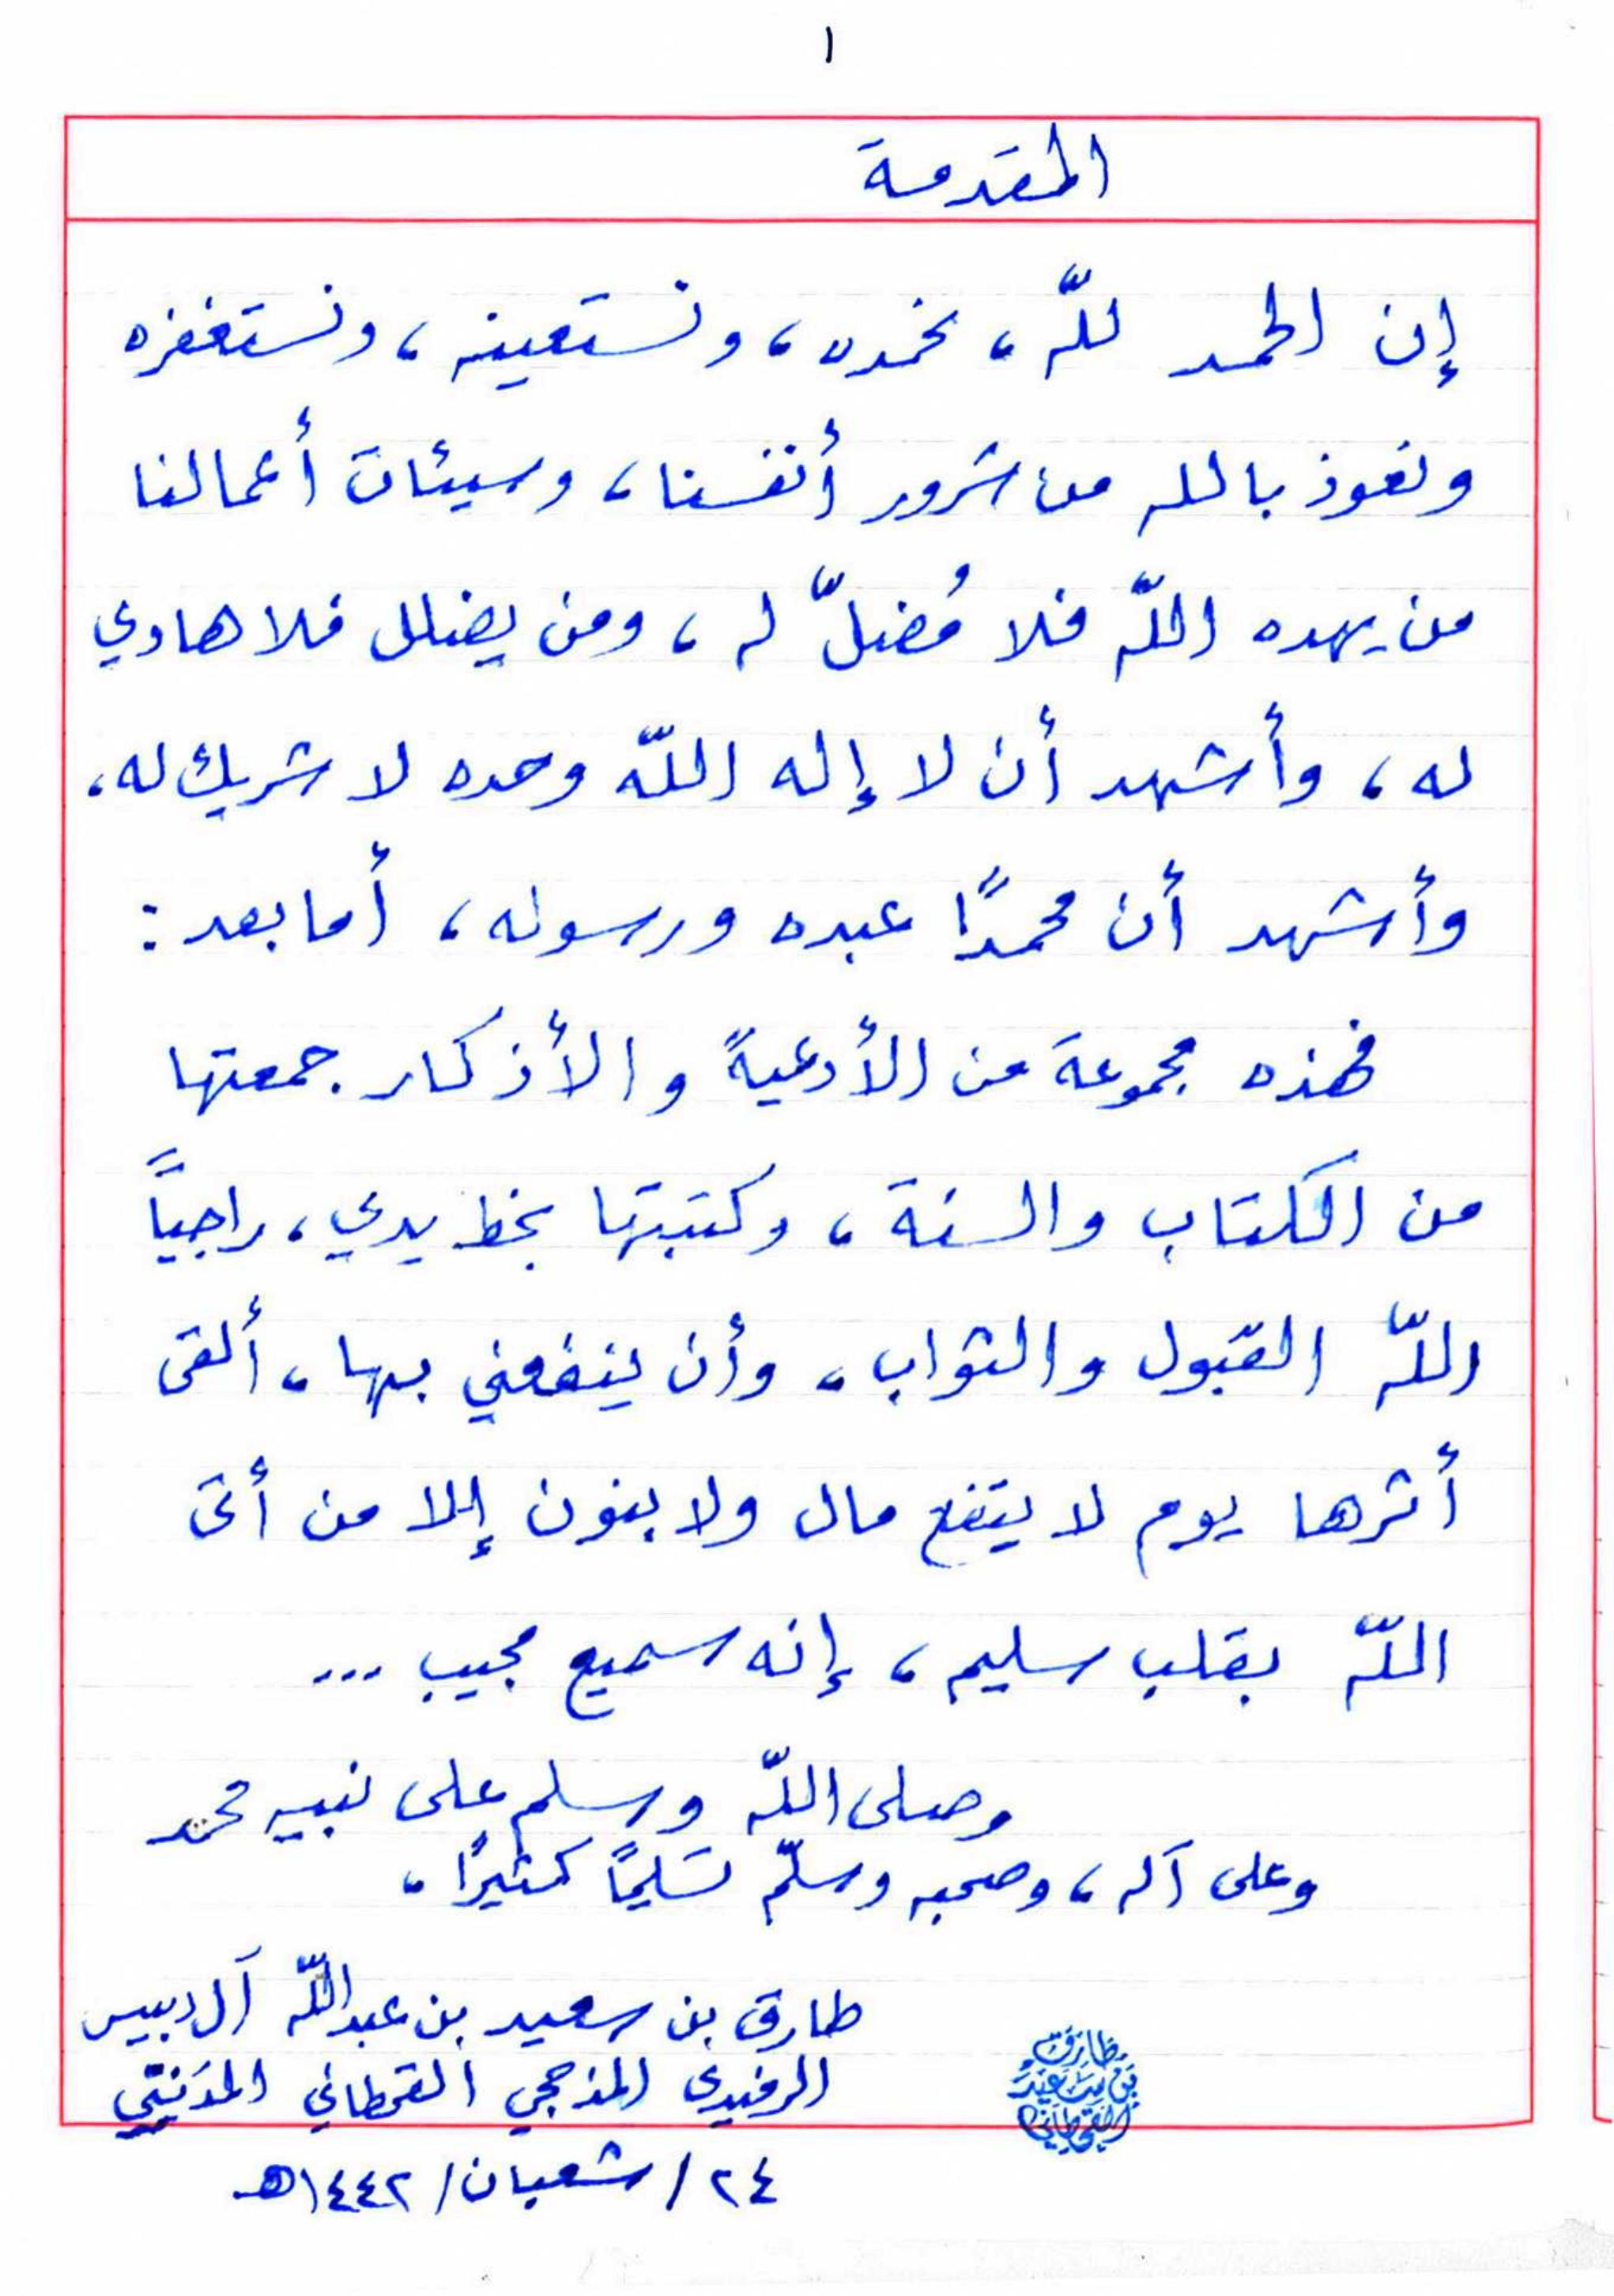 ١
المقدمة
إن الحمد للّه، نحمده، ونستعينه، ونستغفره
ونعوذ بالله من شرور أنفسنا، وسيئات أعمالنا
من يهده اللّه فلا مُضلّ له، ومن يضلل فلا هادي
له، وأشهد أن لا إله اللّه وحده لا شريك له،
وأشهد أن محمدًا عبده ورسوله، أما بعد:
فهذه مجموعة من الأدعيةً والأذكار جمعتها
من الكتاب والسنة، وكتبتها بخط يدي، راجياً
اللّه القبول والثواب، وأن ينفعني بها، ألقى
أثرها يوم لا ينفع مال ولا بنون إلا من أتى
اللّه بقلب سليم، إنه سميع مجيب ...
وصلى اللّه وسلم على نبيه محمد
وعلى آله، وصحبه وسلّم تسليمًا كثيرًا،
طارق بن سعيد بن عبداللّه آل دبيس
الرفيدي المذحجي القحطاني
طارق
بن سعيد
القحطاني
٢٤ / شعبان / ١٤٤٢هـ